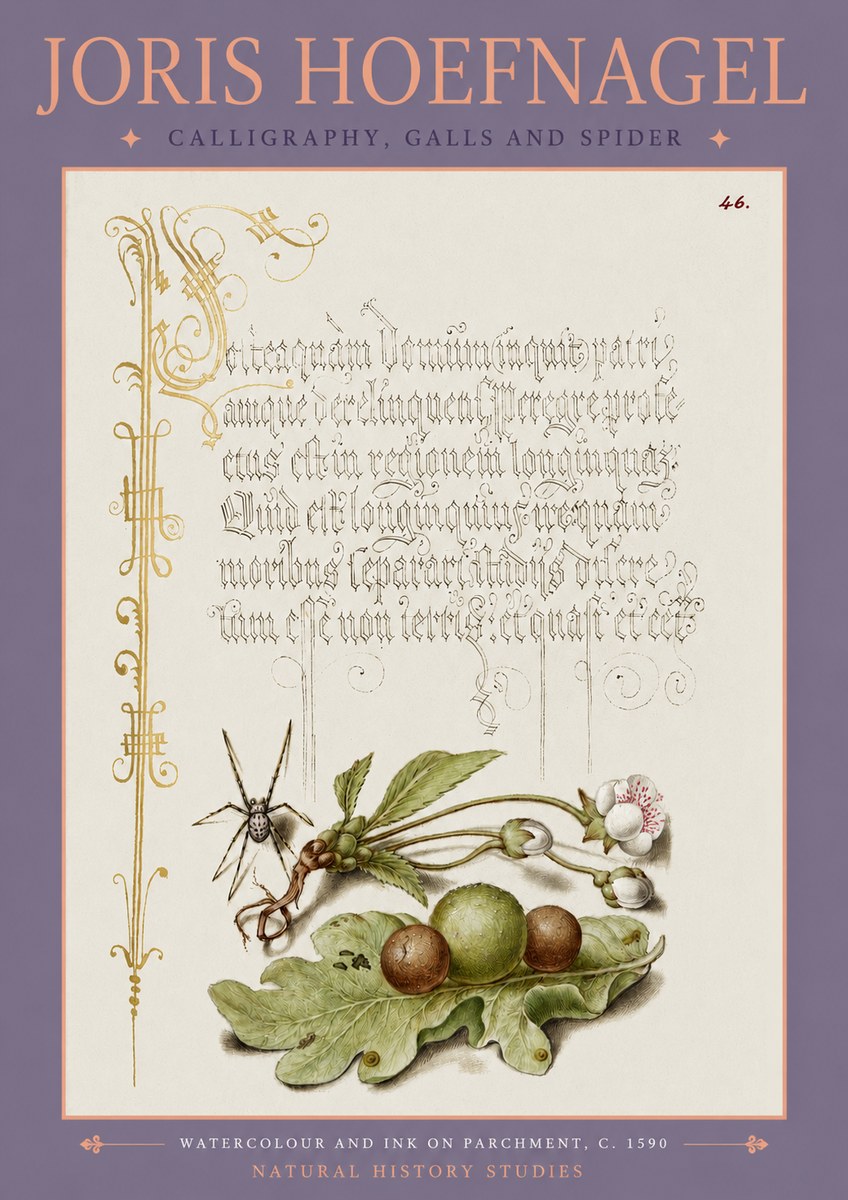 JORIS HOEFNAGEL
CALLIGRAPHY, GALLS AND SPIDER
46.
(inquit) patri
amque derelinquens, Peregre profe=
ctus est in regionem
Quid est longinquius
moribus separari, studijs discre
tum esse non terris: et quasi
WATERCOLOUR AND INK ON PARCHMENT, C. 1590
NATURAL HISTORY STUDIES